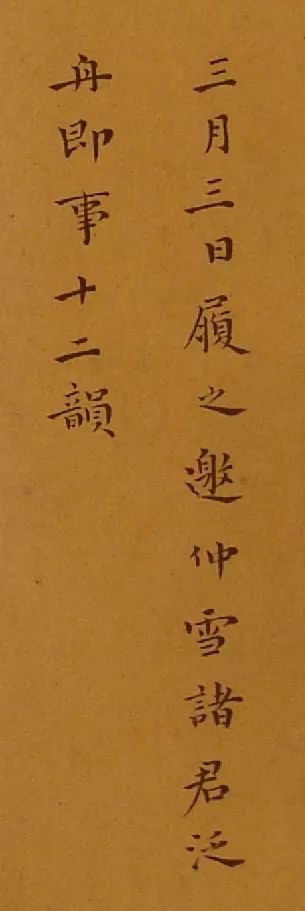 三月三日履之邀仲雪諸君泛
舟即事十二韻